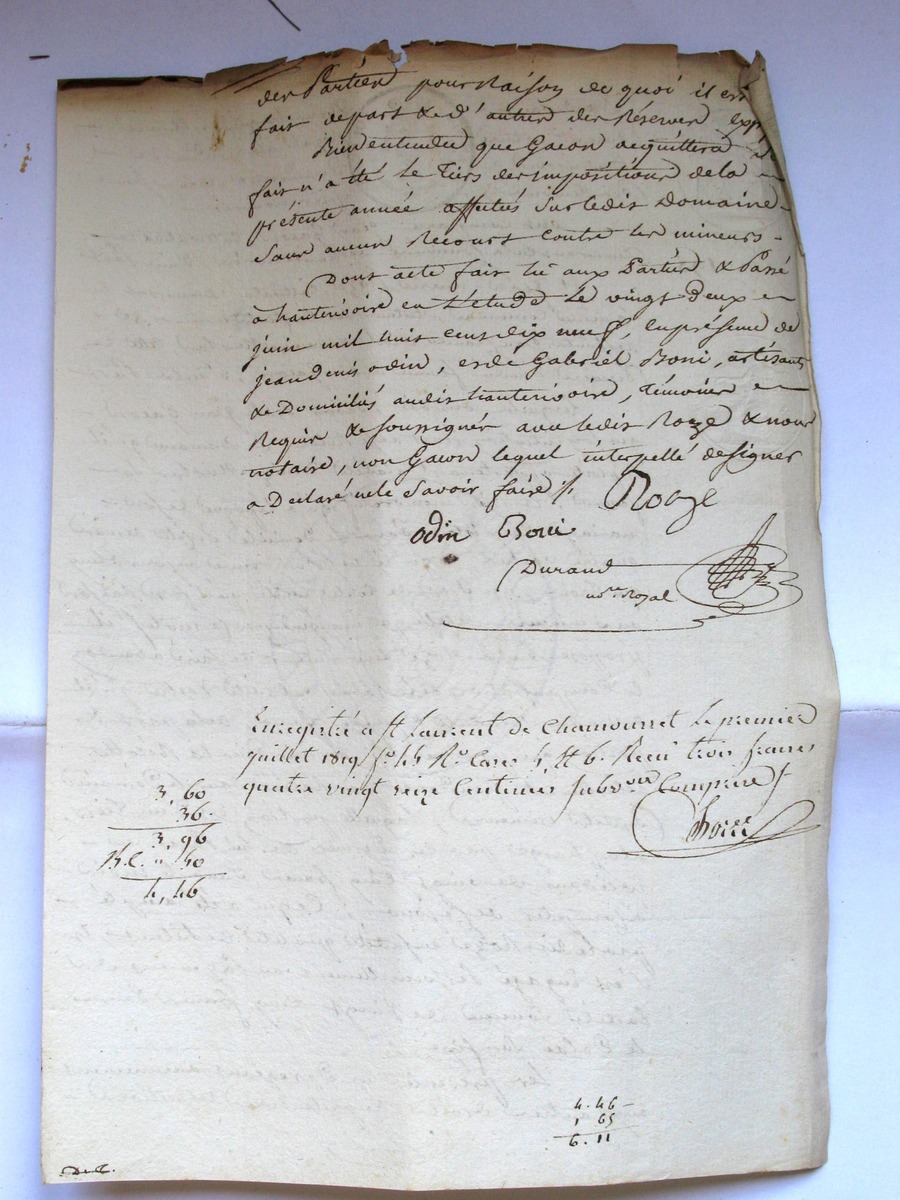 des Parties pour Raison de quoi il est
fait de part & d'autre des Réserves
Bien entendu que Gacon acquittera
fait n'a été le Tiers des impositions de la
présente année affectés sur ledit Domaine
Sans aucun Recours contre les mineurs -
Dont acte fait lu aux Parties & Passé
à hauterivoire en L'etude le vingt deux
juin mil huit cent dix neuf, en présence de
jean denis odin, et de Gabriel Boni, artisants
& Domiciliés audit hauterivoire, Témoins
Requis & soussignés avec ledit Roze & nous
notaire, non Gacon lequel interpellé de signer
a Déclaré ne le Savoir faire /. Roze
odin Boni
Durand
no.re Royal
Enregistré a St Laurent de Chamousset le premier
juillet 1819 f.o 44 R.o Cases 5 & 6. Reçu trois francs
quatre vingt seize Centimes Subv.on Comprise /.
3, 60
36 -
3, 96
" 50
4, 46
4. 46 -
1 65
6. 11